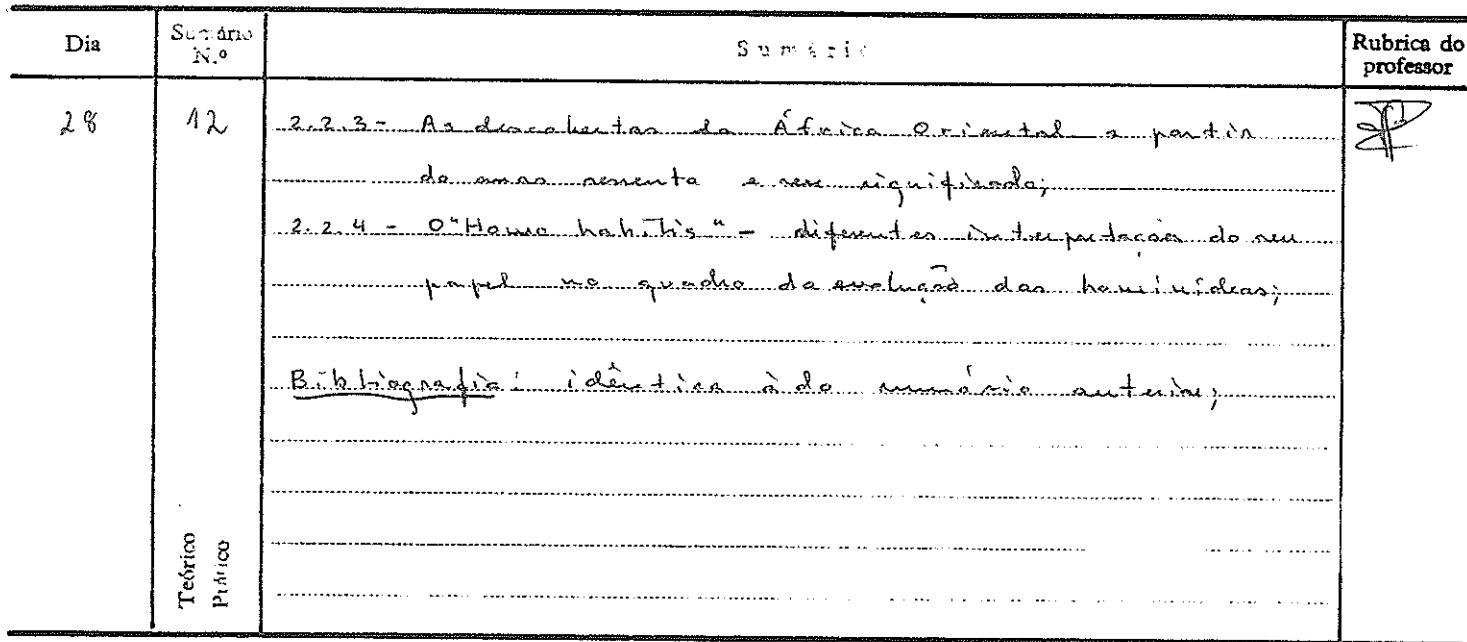 Dia
Sumário N.º
Sumário
Rubrica do professor
28
12
2.2.3- As descobertas da África Oriental a partir
de anos sessenta e seu significado;
2.2.4 - O "Homo habilis" - diferentes interpretações do seu
papel no quadro da evolução dos hominídeos;
Bibliografia: idêntica à do sumário anterior;
Teórico
Prático